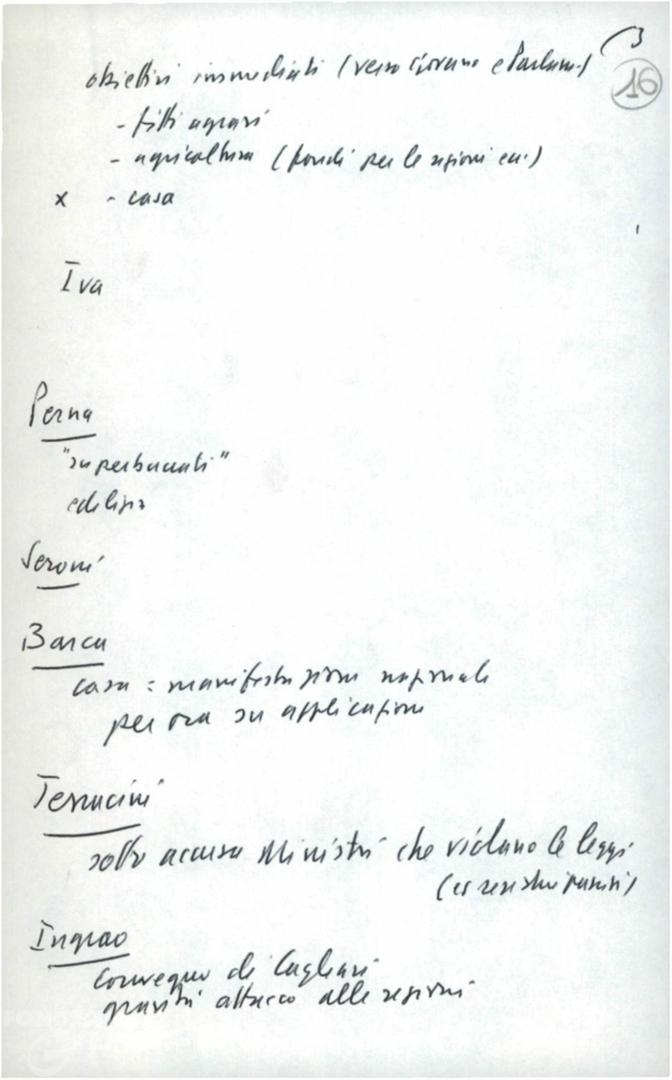 3
16
obiettivi immediati (verso Governo e Parlam.)
- fitti agrari
- agricoltura (fondi per le regioni ecc.)
x - casa
Iva
Perna
"superburocrati"
edilizia
Seroni
Barca
casa = manifestazione nazionale
per ora su applicazione
Terracini
sotto accusa Ministri che violano le leggi
(es
Ingrao
convegno di Cagliari
gravità attacco alle regioni